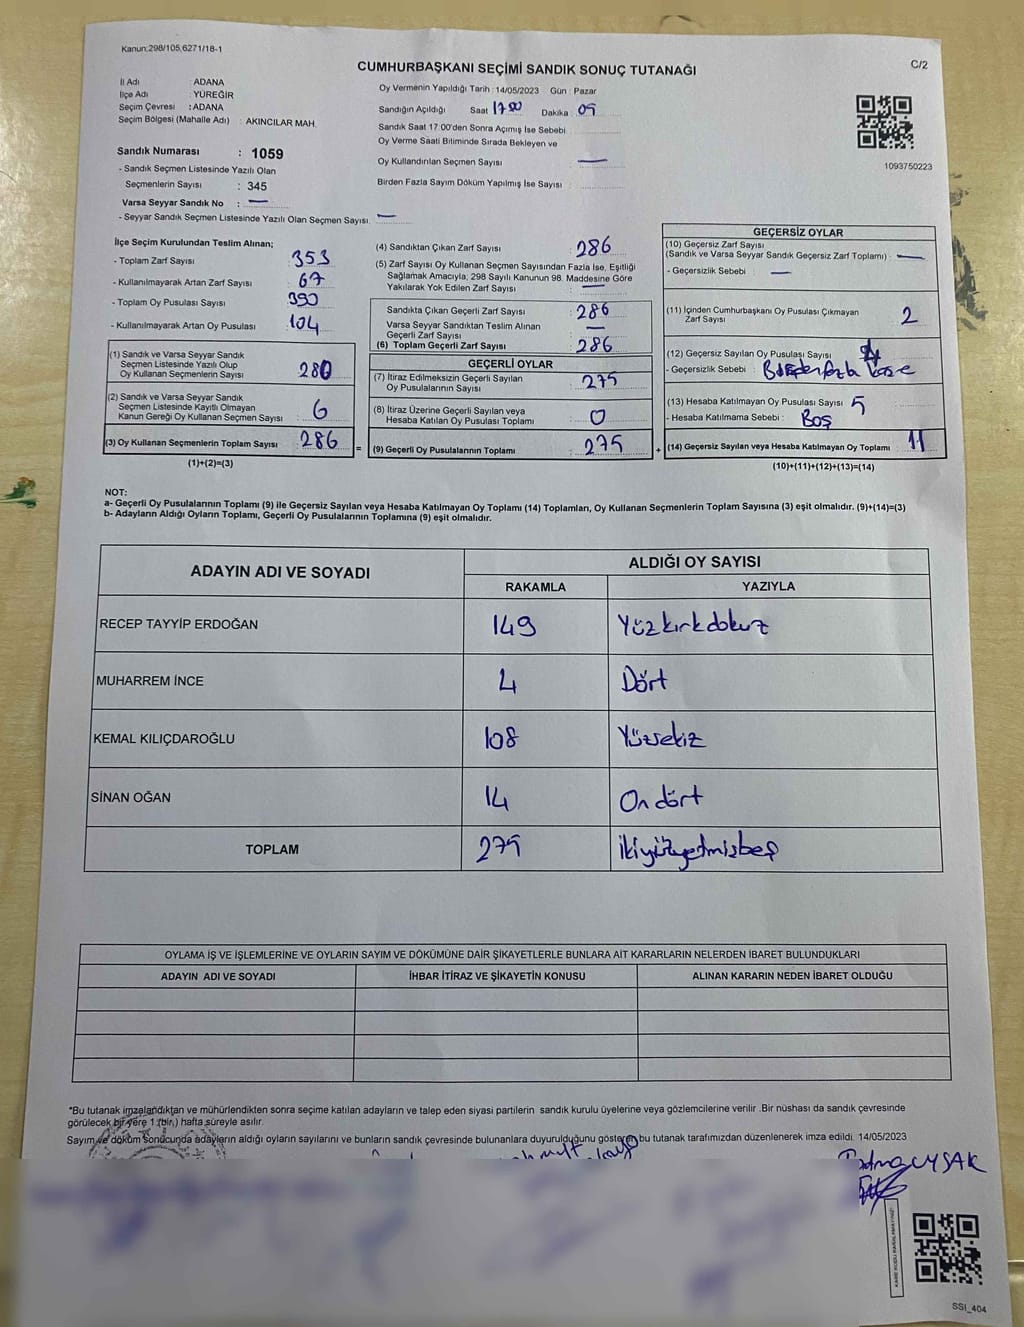 Kanun:298/105,6271/18-1
C/2
CUMHURBAŞKANI SEÇİMİ SANDIK SONUÇ TUTANAĞI
İl Adı : ADANA
İlçe Adı : YÜREĞİR
Seçim Çevresi : ADANA
Seçim Bölgesi (Mahalle Adı) : AKINCILAR MAH.
Sandık Numarası : 1059
- Sandık Seçmen Listesinde Yazılı Olan
Seçmenlerin Sayısı : 345
Varsa Seyyar Sandık No : —
- Seyyar Sandık Seçmen Listesinde Yazılı Olan Seçmen Sayısı. —
Oy Vermenin Yapıldığı Tarih : 14/05/2023 Gün : Pazar
Sandığın Açıldığı Saat 17 00 Dakika : 05
Sandık Saat 17:00'den Sonra Açımış İse Sebebi
Oy Verme Saati Bitiminde Sırada Bekleyen ve
Oy Kullandırılan Seçmen Sayısı : —
Birden Fazla Sayım Döküm Yapılmış İse Sayısı :
1093750223
İlçe Seçim Kurulundan Teslim Alınan;
- Toplam Zarf Sayısı : 353
- Kullanılmayarak Artan Zarf Sayısı : 67
- Toplam Oy Pusulası Sayısı : 390
- Kullanılmayarak Artan Oy Pusulası : 104
(1) Sandık ve Varsa Seyyar Sandık
Seçmen Listesinde Yazılı Olup
Oy Kullanan Seçmenlerin Sayısı : 280
(2) Sandık ve Varsa Seyyar Sandık
Seçmen Listesinde Kayıtlı Olmayan
Kanun Gereği Oy Kullanan Seçmen Sayısı : 6
(3) Oy Kullanan Seçmenlerin Toplam Sayısı : 286
(1)+(2)=(3)
(4) Sandıktan Çıkan Zarf Sayısı : 286
(5) Zarf Sayısı Oy Kullanan Seçmen Sayısından Fazla İse, Eşitliği
Sağlamak Amacıyla; 298 Sayılı Kanunun 98. Maddesine Göre
Yakılarak Yok Edilen Zarf Sayısı : —
Sandıkta Çıkan Geçerli Zarf Sayısı : 286
Varsa Seyyar Sandıktan Teslim Alınan
Geçerli Zarf Sayısı : —
(6) Toplam Geçerli Zarf Sayısı : 286
GEÇERLİ OYLAR
(7) İtiraz Edilmeksizin Geçerli Sayılan
Oy Pusulalarının Sayısı : 275
(8) İtiraz Üzerine Geçerli Sayılan veya
Hesaba Katılan Oy Pusulası Toplamı : 0
= (9) Geçerli Oy Pusulalarının Toplamı : 275
GEÇERSİZ OYLAR
(10) Geçersiz Zarf Sayısı
(Sandık ve Varsa Seyyar Sandık Geçersiz Zarf Toplamı) : —
- Geçersizlik Sebebi : —
(11) İçinden Cumhurbaşkanı Oy Pusulası Çıkmayan
Zarf Sayısı : 2
(12) Geçersiz Sayılan Oy Pusulası Sayısı : 4
- Geçersizlik Sebebi : Birden fazla kaşe
(13) Hesaba Katılmayan Oy Pusulası Sayısı : 5
- Hesaba Katılmama Sebebi : Boş
+ (14) Geçersiz Sayılan veya Hesaba Katılmayan Oy Toplamı : 11
(10)+(11)+(12)+(13)=(14)
NOT:
a- Geçerli Oy Pusulalarının Toplamı (9) ile Geçersiz Sayılan veya Hesaba Katılmayan Oy Toplamı (14) Toplamları, Oy Kullanan Seçmenlerin Toplam Sayısına (3) eşit olmalıdır. (9)+(14)=(3)
b- Adayların Aldığı Oyların Toplamı, Geçerli Oy Pusulalarının Toplamına (9) eşit olmalıdır.
ADAYIN ADI VE SOYADI
ALDIĞI OY SAYISI
RAKAMLA YAZIYLA
RECEP TAYYİP ERDOĞAN 149 Yüzkırkdokuz
MUHARREM İNCE 4 Dört
KEMAL KILIÇDAROĞLU 108 Yüzsekiz
SİNAN OĞAN 14 On dört
TOPLAM 275 ikiyüzyetmişbeş
OYLAMA İŞ VE İŞLEMLERİNE VE OYLARIN SAYIM VE DÖKÜMÜNE DAİR ŞİKAYETLERLE BUNLARA AİT KARARLARIN NELERDEN İBARET BULUNDUKLARI
ADAYIN ADI VE SOYADI İHBAR İTİRAZ VE ŞİKAYETİN KONUSU ALINAN KARARIN NEDEN İBARET OLDUĞU
*Bu tutanak imzalandıktan ve mühürlendikten sonra seçime katılan adayların ve talep eden siyasi partilerin sandık kurulu üyelerine veya gözlemcilerine verilir .Bir nüshası da sandık çevresinde
görülecek bir yere 1 (bir) hafta süreyle asılır.
Sayım ve döküm sonucunda adayların aldığı oyların sayılarını ve bunların sandık çevresinde bulunanlara duyurulduğunu gösteren bu tutanak tarafımızdan düzenlenerek imza edildi. 14/05/2023
UYSAK
SSI_404